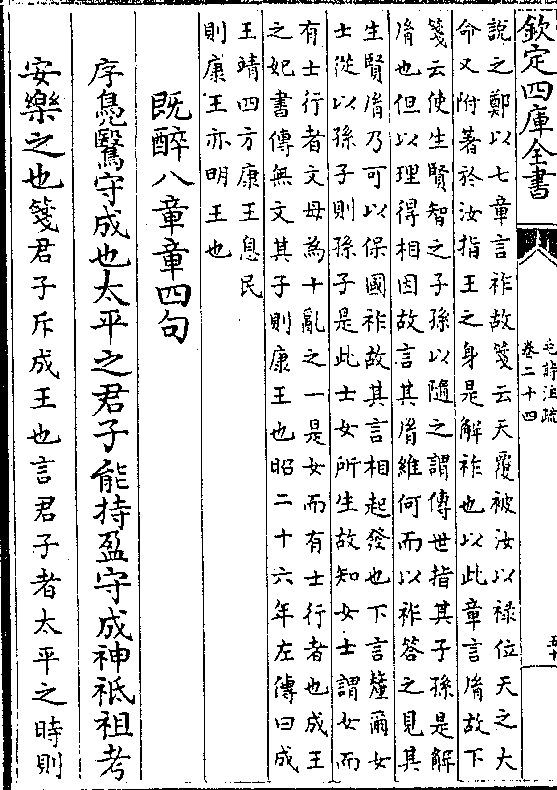 欽定四庫全書
毛詩注疏
卷二十四
五十
說之鄭以七章言祚故箋云天覆被汝以祿位天之大
命又附著於汝指王之身是解祚也以此章言胤故下
箋云使生賢智之子孫以隨之謂傳世指其子孫是解
胤也但以理得相因故言其胤維何而以祚答之見其
生賢胤乃可以保國祚故其言相起發也下言釐爾女
士從以孫子則孫子是此士女所生故知女士謂女而
有士行者文母為十亂之一是女而有士行者也成王
之妃書傳無文其子則康王也昭二十六年左傳曰成
王靖四方康王息民
則康王亦明王也
既醉八章章四句
序鳧鷖守成也太平之君子能持盈守成神祗祖考
安樂之也箋君子斥成王也言君子者太平之時則